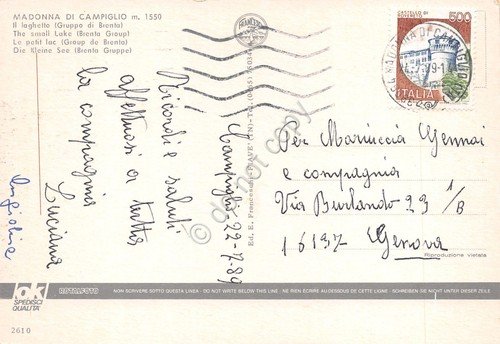 MADONNA DI CAMPIGLIO m. 1550
Il laghetto (Gruppo di Brenta)
The small Lake (Brenta Group)
Le petit lac (Group de Brenta)
Die Kleine See (Gruppe Brenta)
CASTELLO DI
ROVERETO
500
ITALIA
Campiglio 22-7-89
Ricordi e saluti
affettuosi a tutta
la compagnia
Luciana
Angiolina
Per Mariuccia Gennai
e compagnia
Via Burlando 23 1/B
16137 Genova
Riproduzione vietata
do not copy
rdk
SPEDISCI
QUALITÀ
ROTALFOTO
NON SCRIVERE SOTTO QUESTA LINEA - DO NOT WRITE BELOW THIS LINE - NE RIEN ECRIRE AU-DESSOUS DE CETTE LIGNE - SCHREIBEN SIE NICHT UNTER DIESER ZEILE
2610